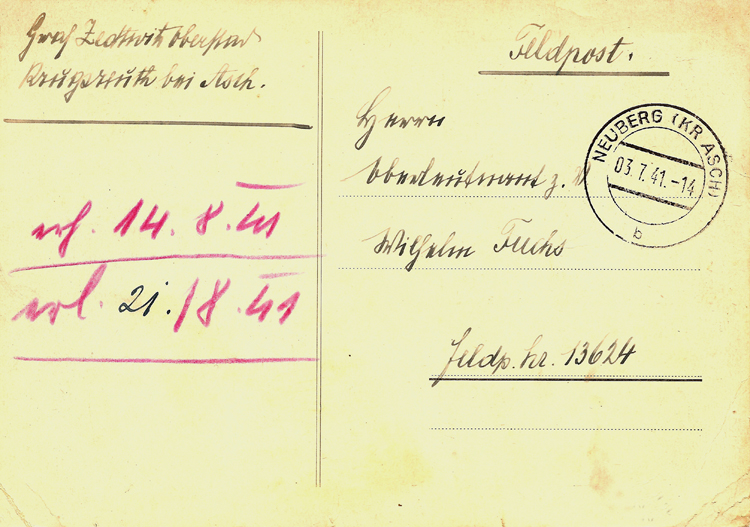 Graf Zedtwitz Oberstlt
Krugsreuth bei Asch.
erh. 14. 8. 41
erl. 21. /8. 41
Feldpost.
Herrn
Oberleutnant z. V
Wilhelm Fuchs
Feldp. Nr. 13624
NEUBERG (KR ASCH)
03.7.41.-14
b